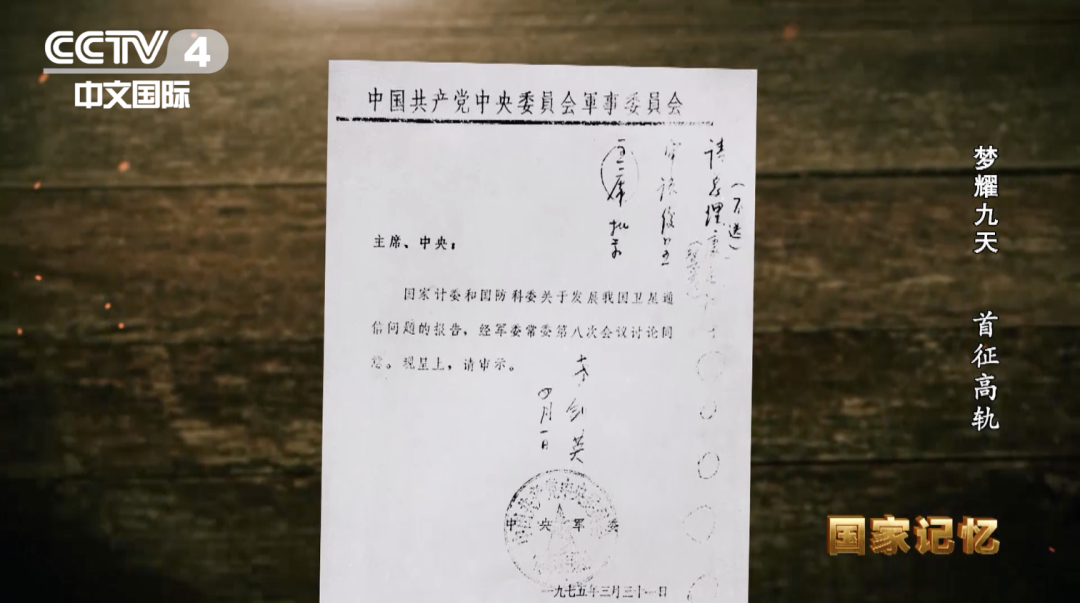 CCTV 4
中文国际
中国共产党中央委員会軍事委員会
(不送)
请总理
主席批示
主席、中央：
国家计委和国防科委关于发展我国卫星通
信问题的报告，经军委常委第八次会议讨论同
意。现呈上，请审示。
剑英
四月一日
中央军委
一九七五年三月三十一日
梦耀九天 首征高轨
国家记忆